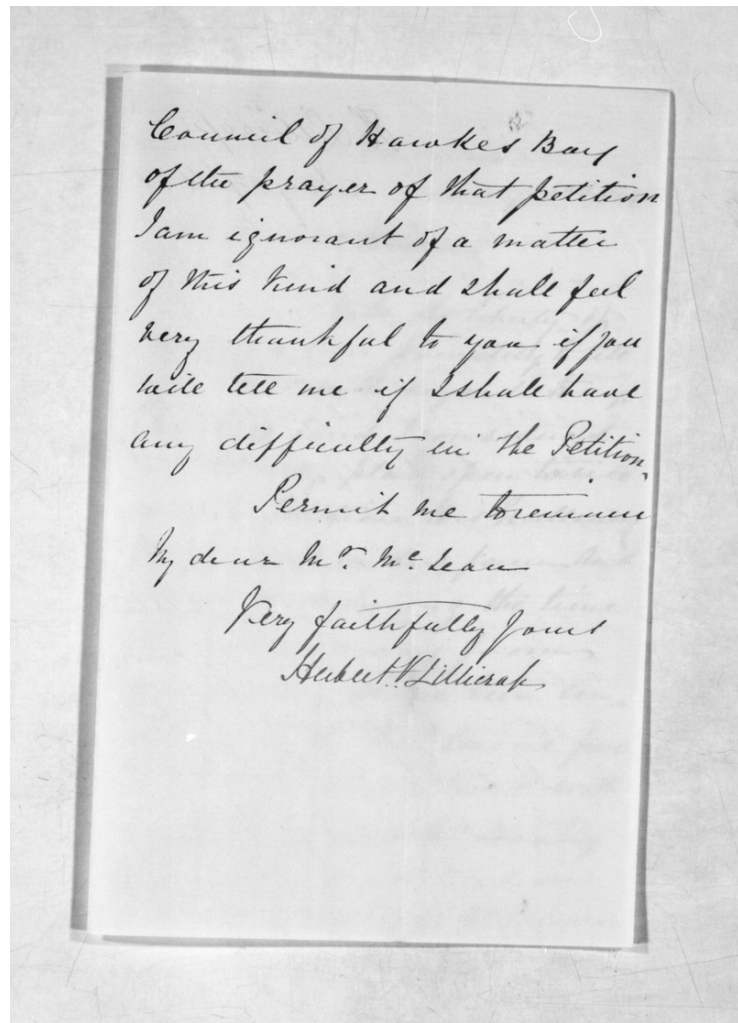 Council of Hawkes Bay
of the prayer of that petition
I am ignorant of a matter
of this kind and shall feel
very thankful to you if you
will tell me if I shall have
any difficulty in the Petition.
Permit me to remain
My dear Mr. Mc Lean
Very faithfully yours
Herbert V Lillicrap